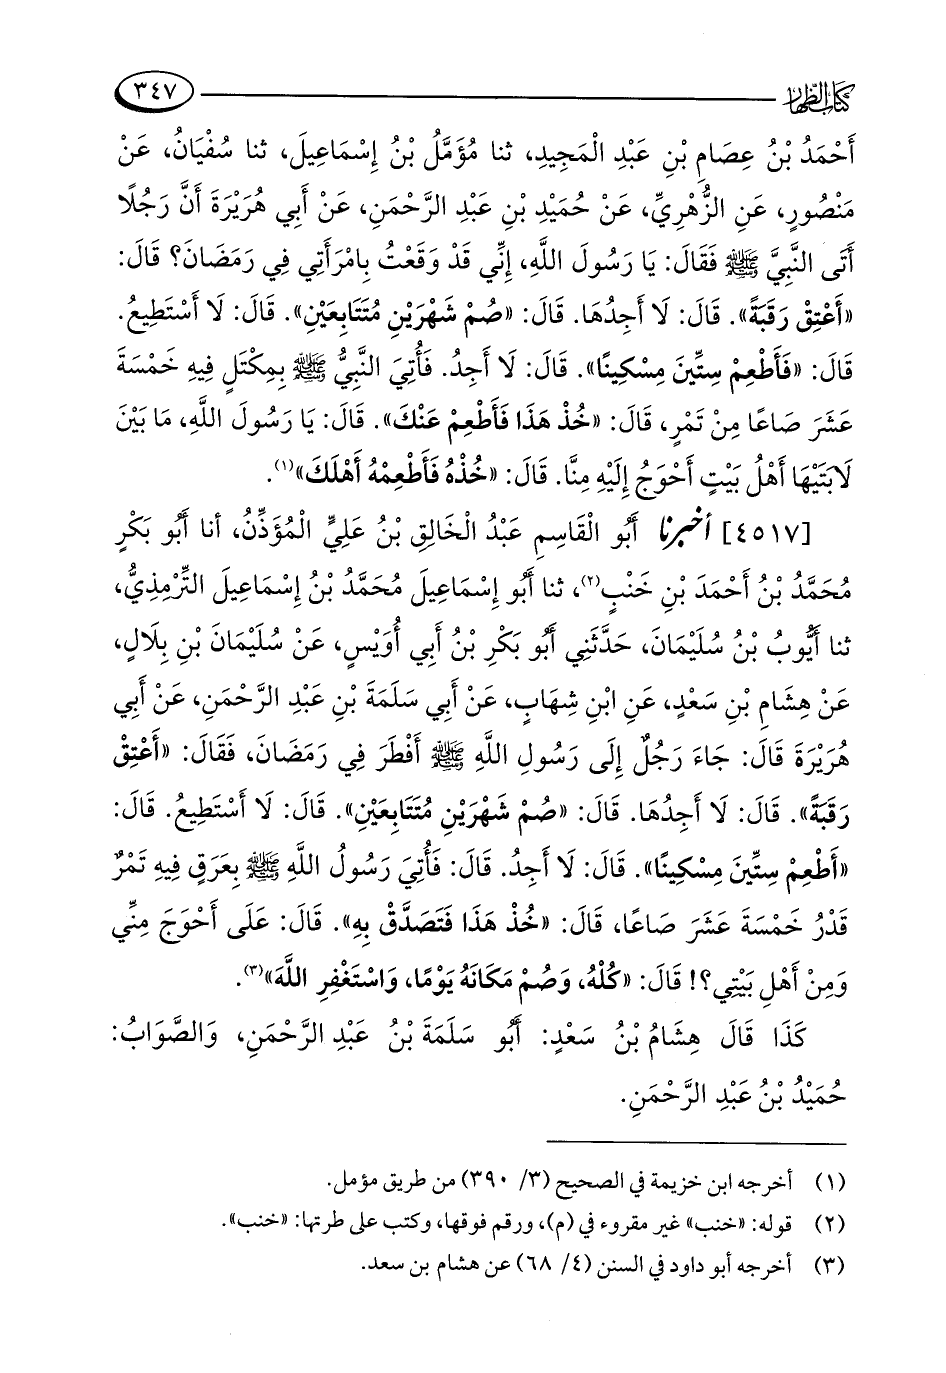 كتاب الظهار ٣٤٧
أَحْمَدُ بْنُ عِصَامِ بْنِ عَبْدِ الْمَجِيدِ، ثنا مُؤَمَّلُ بْنُ إِسْمَاعِيلَ، ثنا سُفْيَانُ، عَنْ
مَنْصُورٍ، عَنِ الزُّهْرِيِّ، عَنْ حُمَيْدِ بْنِ عَبْدِ الرَّحْمَنِ، عَنْ أَبِي هُرَيْرَةَ أَنَّ رَجُلًا
أَتَى النَّبِيَّ ﷺ فَقَالَ: يَا رَسُولَ اللَّهِ، إِنِّي قَدْ وَقَعْتُ بِامْرَأَتِي فِي رَمَضَانَ؟ قَالَ:
«أَعْتِقْ رَقَبَةً». قَالَ: لَا أَجِدُهَا. قَالَ: «صُمْ شَهْرَيْنِ مُتَتَابِعَيْنِ». قَالَ: لَا أَسْتَطِيعُ.
قَالَ: «فَأَطْعِمْ سِتِّينَ مِسْكِينًا». قَالَ: لَا أَجِدُ. فَأُتِيَ النَّبِيُّ ﷺ بِمِكْتَلٍ فِيهِ خَمْسَةَ
عَشَرَ صَاعًا مِنْ تَمْرٍ، قَالَ: «خُذْ هَذَا فَأَطْعِمْ عَنْكَ». قَالَ: يَا رَسُولَ اللَّهِ، مَا بَيْنَ
لَابَتَيْهَا أَهْلُ بَيْتٍ أَحْوَجُ إِلَيْهِ مِنَّا. قَالَ: «خُذْهُ فَأَطْعِمْهُ أَهْلَكَ»(١).
[٤٥١٧] أخبرنا أَبُو الْقَاسِمِ عَبْدُ الْخَالِقِ بْنُ عَلِيٍّ الْمُؤَذِّنُ، أنا أَبُو بَكْرٍ
مُحَمَّدُ بْنُ أَحْمَدَ بْنِ خَنْبٍ(٢)، ثنا أَبُو إِسْمَاعِيلَ مُحَمَّدُ بْنُ إِسْمَاعِيلَ التِّرْمِذِيُّ،
ثنا أَيُّوبُ بْنُ سُلَيْمَانَ، حَدَّثَنِي أَبُو بَكْرِ بْنُ أَبِي أُوَيْسٍ، عَنْ سُلَيْمَانَ بْنِ بِلَالٍ،
عَنْ هِشَامِ بْنِ سَعْدٍ، عَنِ ابْنِ شِهَابٍ، عَنْ أَبِي سَلَمَةَ بْنِ عَبْدِ الرَّحْمَنِ، عَنْ أَبِي
هُرَيْرَةَ قَالَ: جَاءَ رَجُلٌ إِلَى رَسُولِ اللَّهِ ﷺ أَفْطَرَ فِي رَمَضَانَ، فَقَالَ: «أَعْتِقْ
رَقَبَةً». قَالَ: لَا أَجِدُهَا. قَالَ: «صُمْ شَهْرَيْنِ مُتَتَابِعَيْنِ». قَالَ: لَا أَسْتَطِيعُ. قَالَ:
«أَطْعِمْ سِتِّينَ مِسْكِينًا». قَالَ: لَا أَجِدُ. قَالَ: فَأُتِيَ رَسُولُ اللَّهِ ﷺ بِعَرَقٍ فِيهِ تَمْرٌ
قَدْرُ خَمْسَةَ عَشَرَ صَاعًا، قَالَ: «خُذْ هَذَا فَتَصَدَّقْ بِهِ». قَالَ: عَلَى أَحْوَجَ مِنِّي
وَمِنْ أَهْلِ بَيْتِي؟! قَالَ: «كُلْهُ، وَصُمْ مَكَانَهُ يَوْمًا، وَاسْتَغْفِرِ اللَّهَ»(٣).
كَذَا قَالَ هِشَامُ بْنُ سَعْدٍ: أَبُو سَلَمَةَ بْنُ عَبْدِ الرَّحْمَنِ، وَالصَّوَابُ:
حُمَيْدُ بْنُ عَبْدِ الرَّحْمَنِ.
(١) أخرجه ابن خزيمة في الصحيح (٣/ ٣٩٠) من طريق مؤمل.
(٢) قوله: «خنب» غير مقروء في (م)، ورقم فوقها، وكتب على طرتها: «خنب».
(٣) أخرجه أبو داود في السنن (٤/ ٦٨) عن هشام بن سعد.